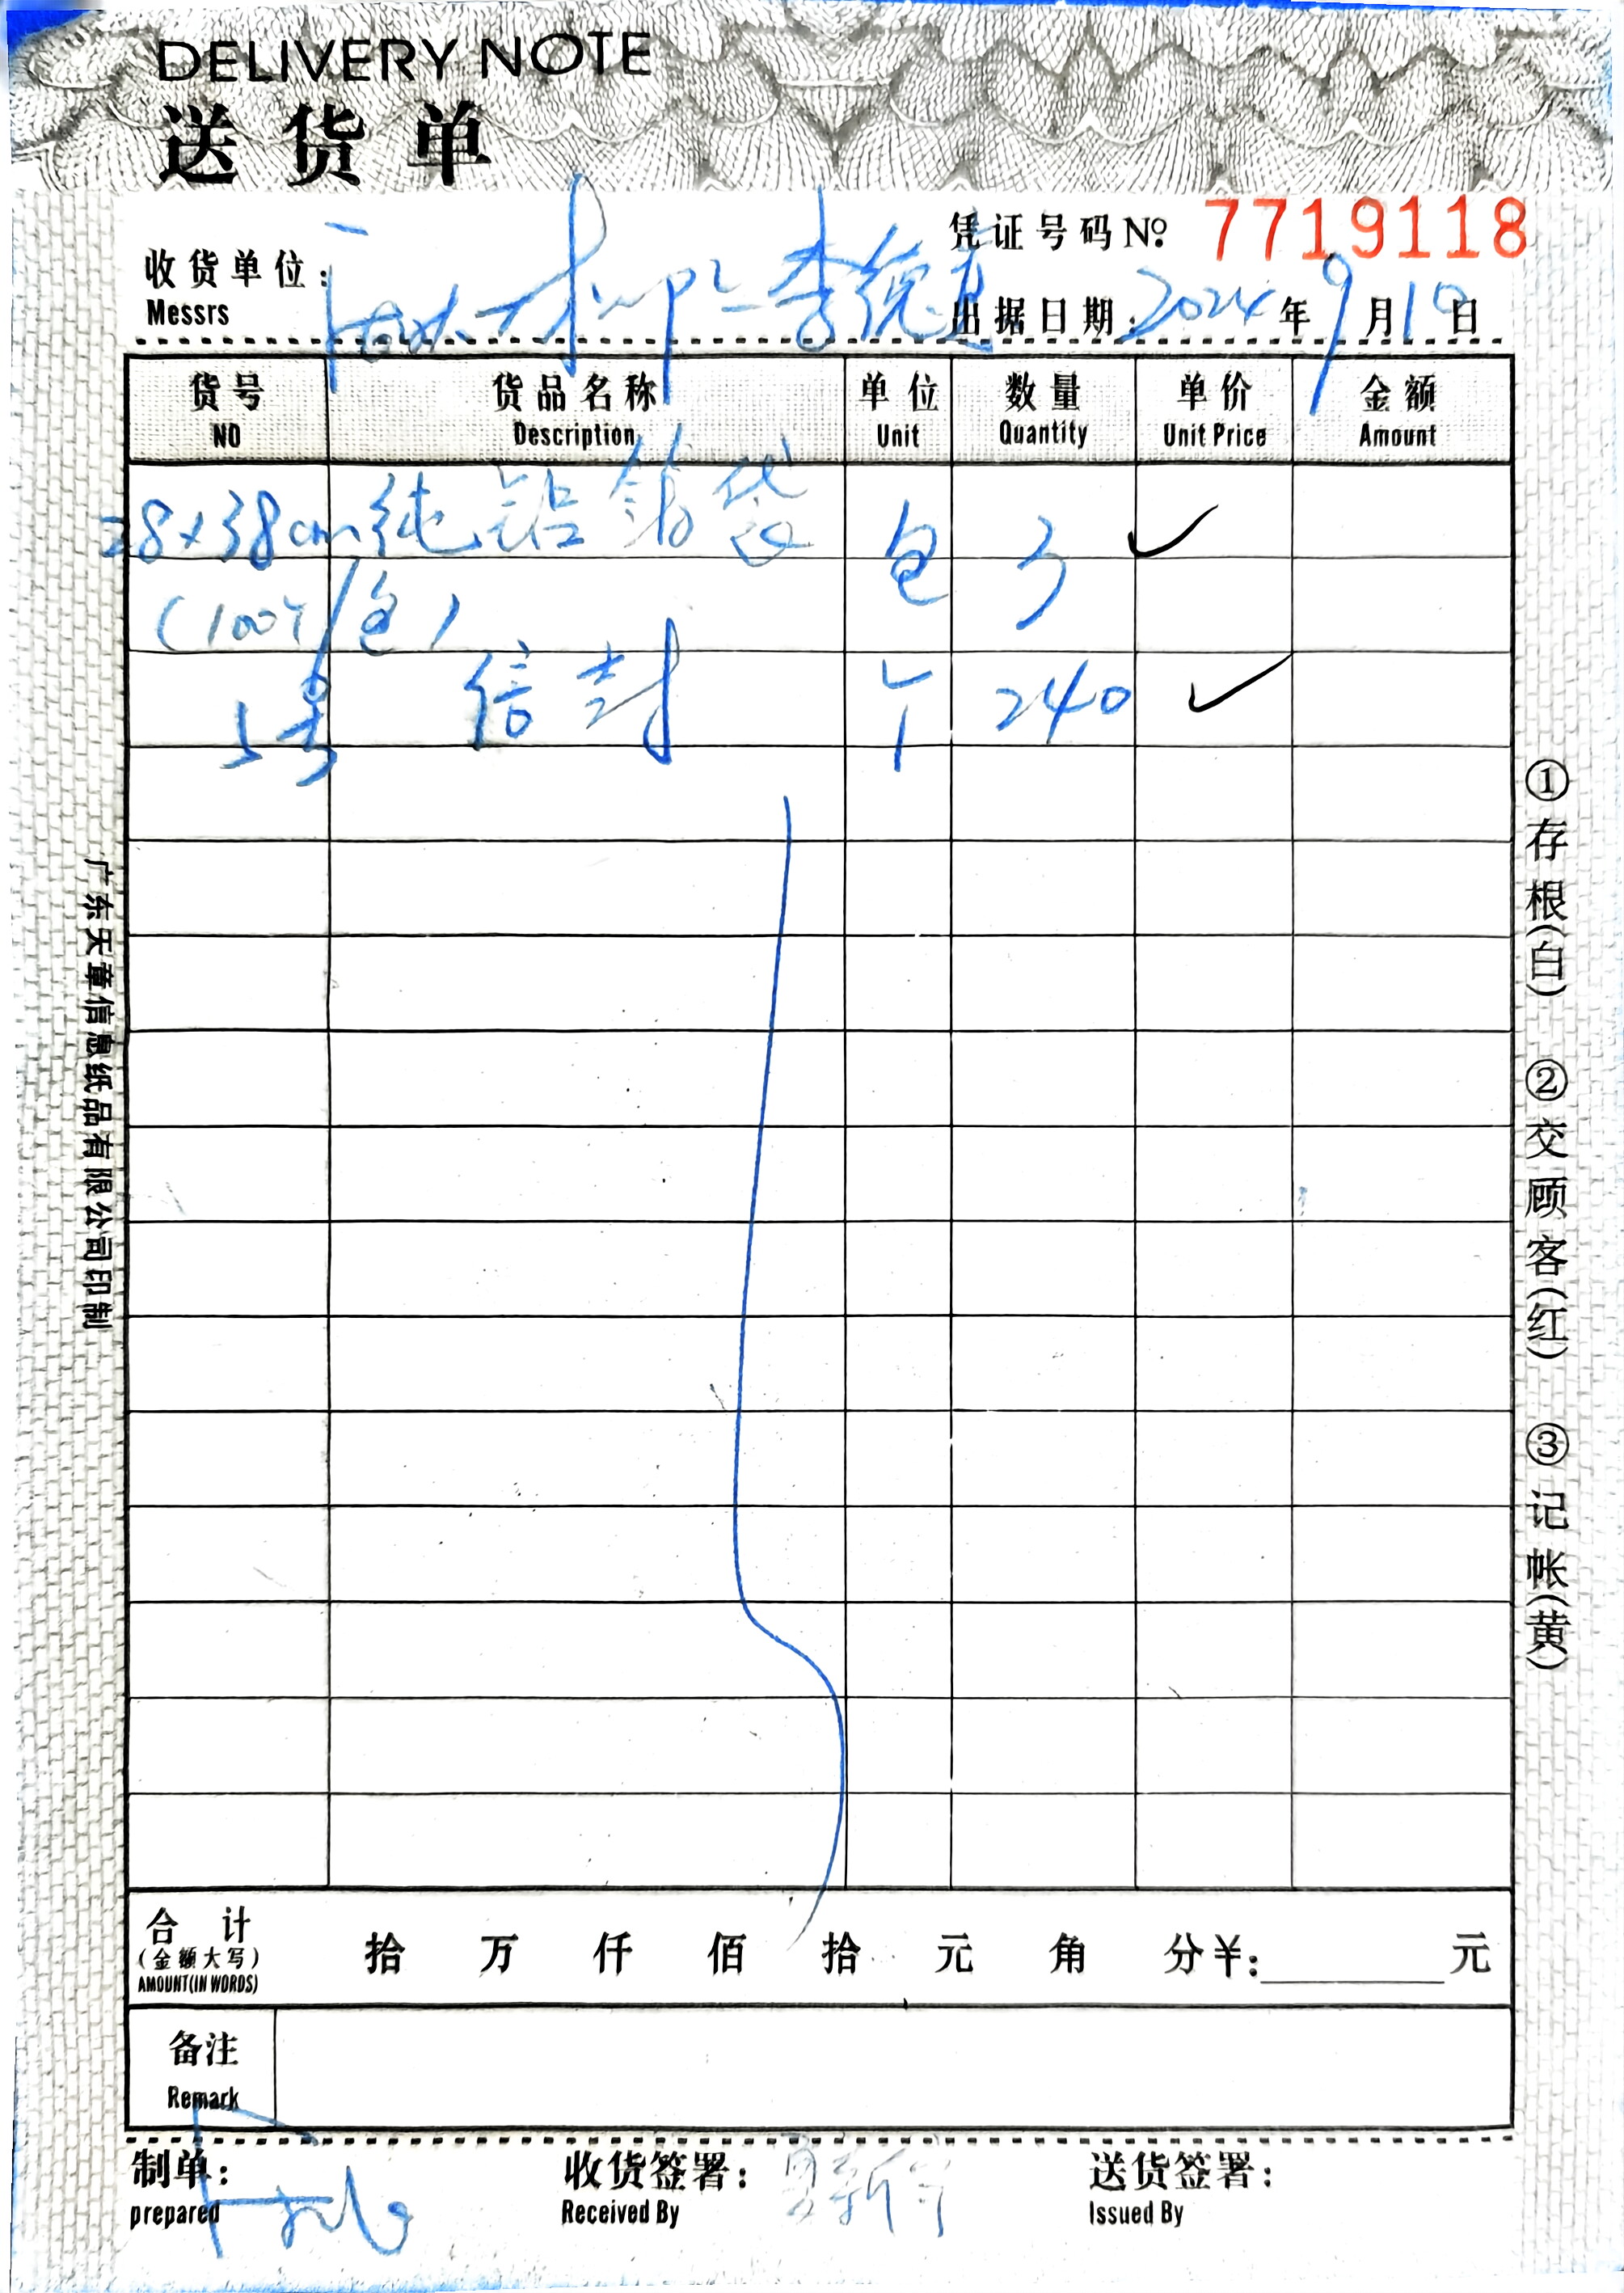 DELIVERY NOTE
送货单
凭证号码 №: 7719118
收货单位:
Messrs
李德
出据日期: 2024年9月10日
货号 货品名称 单位 数量 单价 金额
NO Description Unit Quantity Unit Price Amount
28×38cm 纯铝箔袋 包 3 ✓
(100个/包)
5号 信封 个 240 ✓
合计
(金额大写)
AMOUNT(IN WORDS)
拾 万 仟 佰 拾 元 角 分 ¥:________元
备注
Remark
制单:
prepared
收货签署:
Received By
送货签署:
Issued By
广东天章信息纸品有限公司印制
①存根(白) ②交顾客(红) ③记帐(黄)